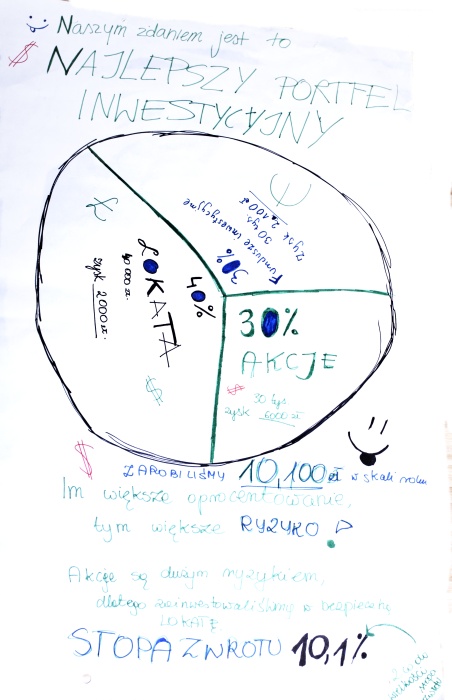 Naszym zdaniem jest to
NAJLEPSZY PORTFEL
INWESTYCYJNY
30%
Fundusze inwestycyjne
30 tys.
zysk 2100 zł
40%
LOKATA
40 000 zł.
zysk 2000 zł.
£
$
30%
AKCJE
$
30 tys.
zysk 6000 zł
$
$
ZAROBILIŚMY 10,100 zł w skali roku
Im większe oprocentowanie,
tym większe RYZYKO !
Akcje są dużym ryzykiem,
dlatego zainwestowaliśmy w bezpieczną
LOKATĘ
STOPA ZWROTU 10,1%